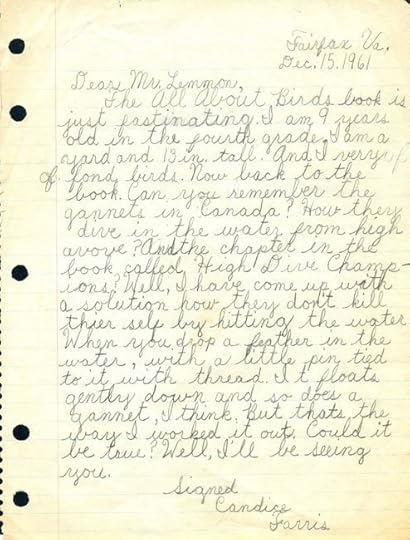 Fairfax Va.
Dec. 15. 1961
Dear Mr. Lemmon,
The All About Birds book is
just fastinating. I am 9 years
old in the fourth grade. I am a
yard and 13 in. tall. And I very
of fond birds. Now back to the
book. Can you remember the
gannets in Canada? How they
dive in the water from high
avove? And the chapter in the
book called, High Dive Champ-
ions. Well, I have come up with
a solution how they don't kill
thier self by hitting the water.
When you drop a feather in the
water, with a little pin tied
to it with thread. It floats
gently down and so does a
gannet, I think. But thats, the
way I worked it out. Could it
be true? Well, I'll be seeing
you.
Signed
Candice
Farris